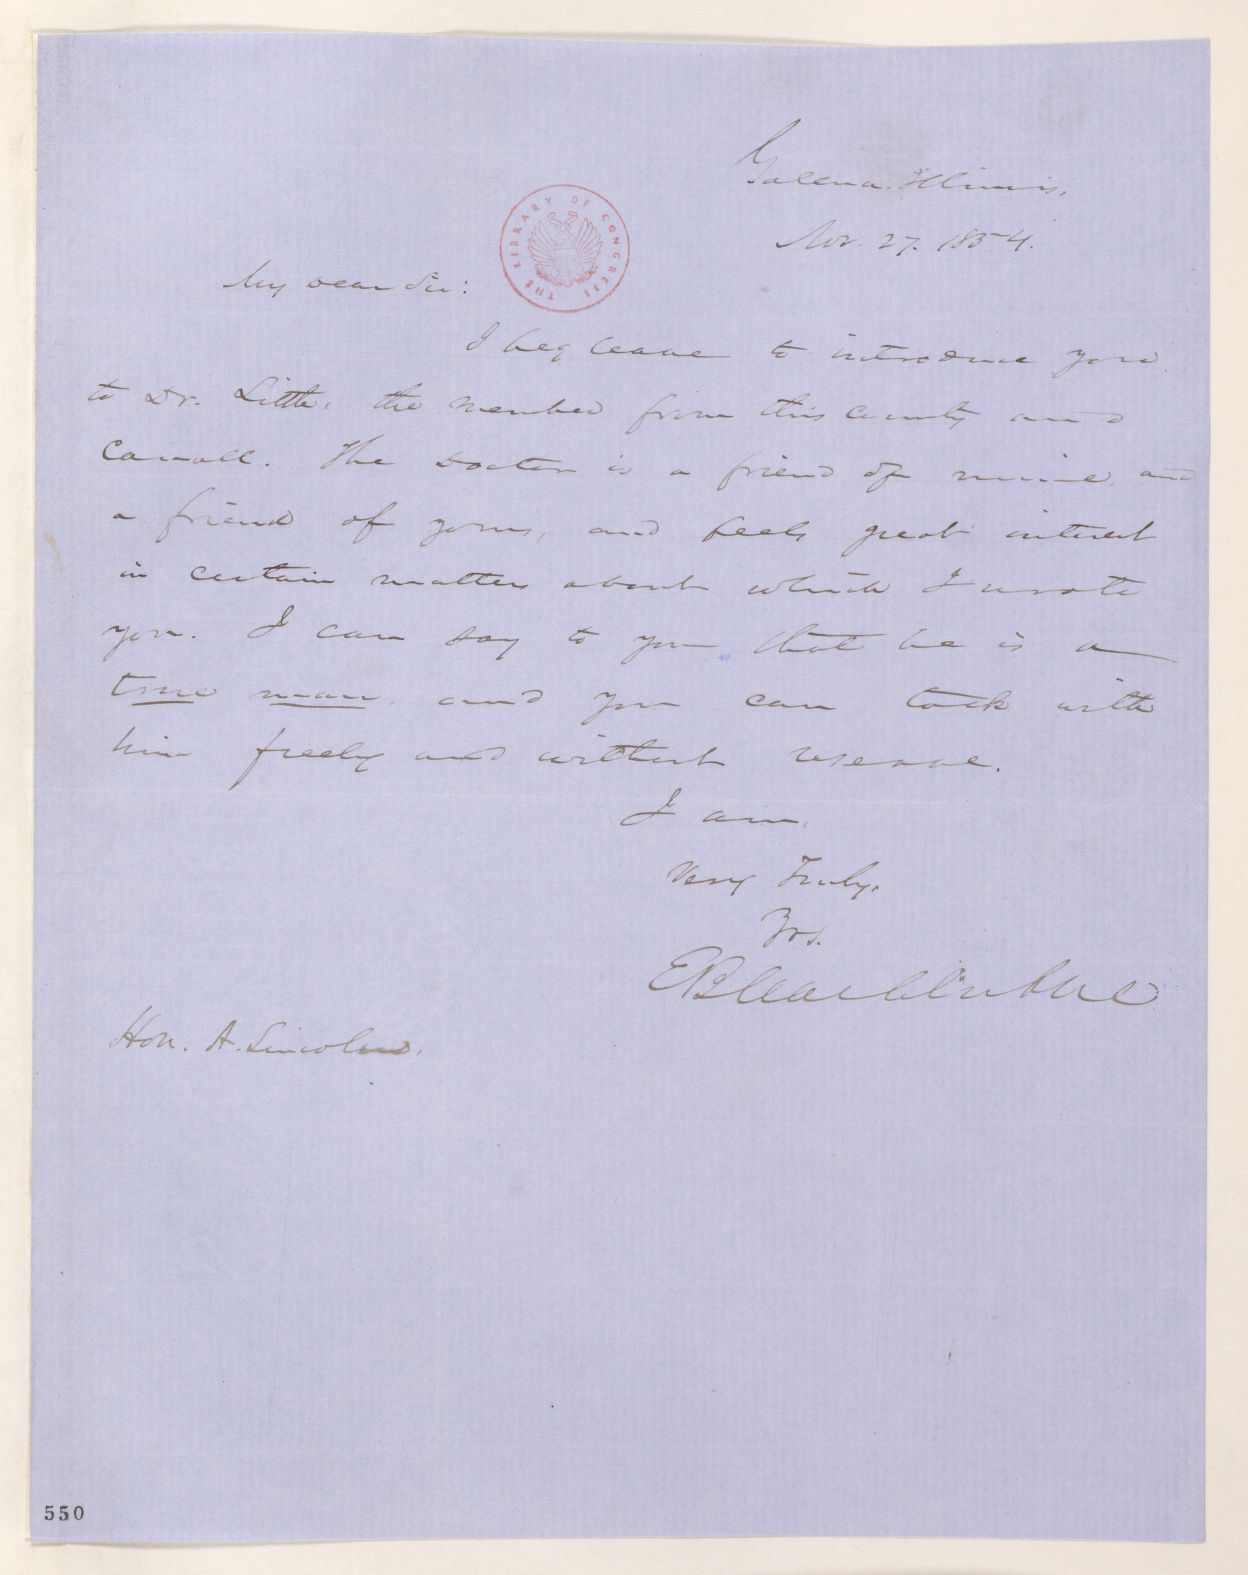 Galena, Illinois,
Nov. 27. 1854.
THE LIBRARY OF CONGRESS
My dear Sir:
I beg leave to introduce you
to Dr. Little, the member from this county and
Carroll. The Doctor is a friend of mine, and
a friend of yours, and feels great interest
in certain matters about which I wrote
you. I can say to you that he is a
true man, and you can talk with
him freely and without reserve.
I am,
Very Truly,
Yrs.
E B Washburne
Hon. A. Lincoln.
550